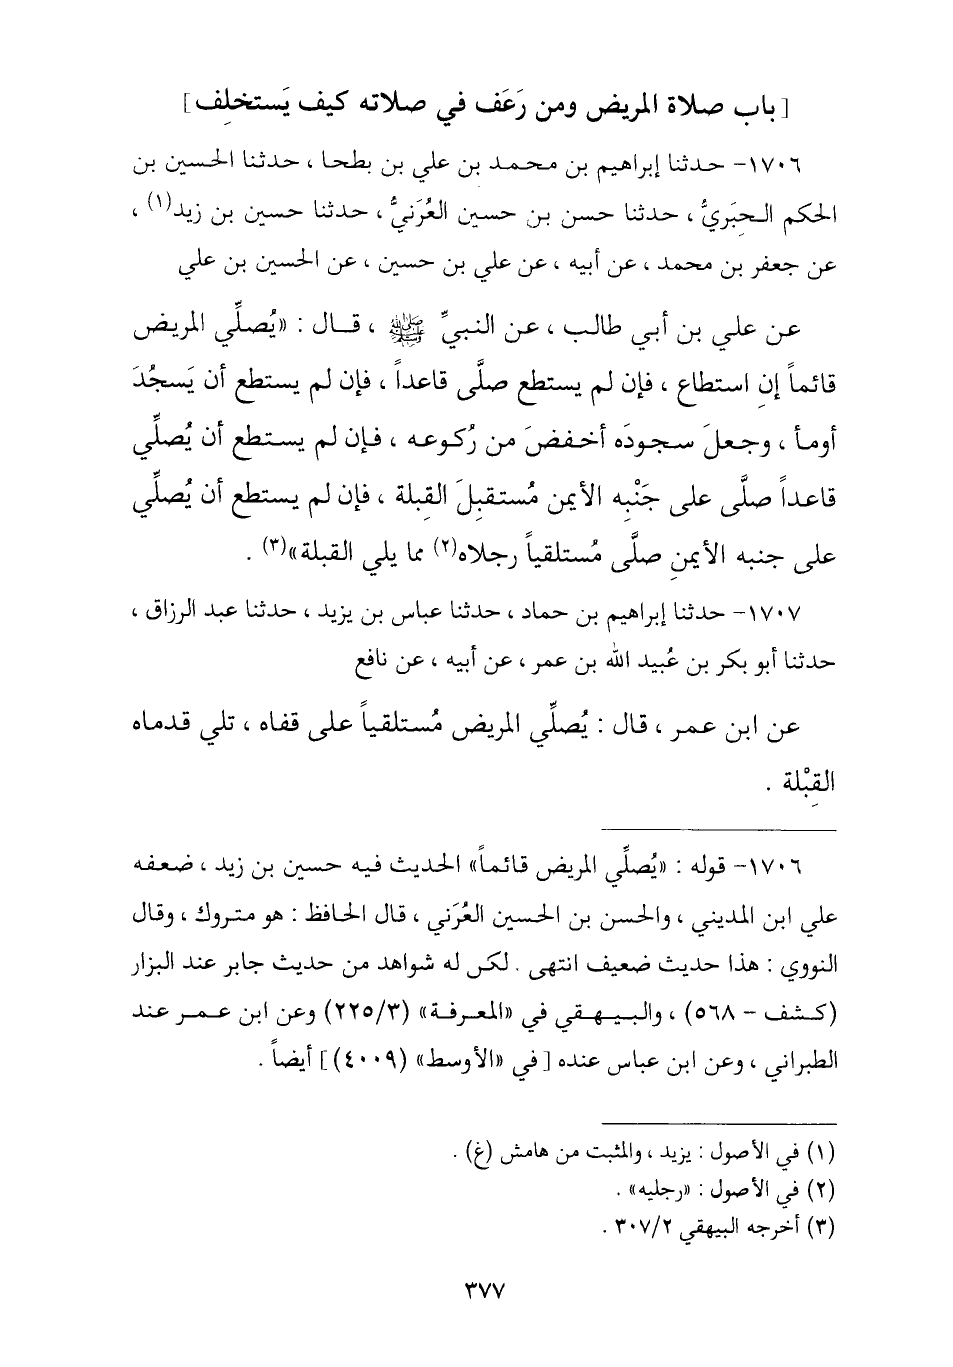 [ باب صلاة المريض ومن رَعَف في صلاته كيف يَستخلِف ]
١٧٠٦- حدثنا إبراهيم بن محمد بن علي بن بطحا ، حدثنا الحسين بن
الحكم الـحِبَريُّ ، حدثنا حسن بن حسين العُرَنيُّ ، حدثنا حسين بن زيد(١) ،
عن جعفر بن محمد ، عن أبيه ، عن علي بن حسين ، عن الحسين بن علي
عن علي بن أبي طالب ، عن النبيِّ ﷺ ، قال : «يُصلِّي المريض
قائماً إنِ استطاع ، فإن لم يستطع صلَّى قاعداً ، فإن لم يستطع أن يَسجُدَ
أومأ ، وجعلَ سجودَه أخفضَ من رُكوعه ، فإن لم يستطع أن يُصلِّي
قاعداً صلَّى على جَنْبِه الأيمن مُستقبِلَ القِبلة ، فإن لم يستطع أن يُصلِّي
على جنبه الأيمنِ صلَّى مُستلقياً رجلاه(٢) مما يلي القبلة»(٣) .
١٧٠٧- حدثنا إبراهيم بن حماد ، حدثنا عباس بن يزيد ، حدثنا عبد الرزاق ،
حدثنا أبو بكر بن عُبيد الله بن عمر ، عن أبيه ، عن نافع
عن ابن عمر ، قال : يُصلِّي المريض مُستلقياً على قفاه ، تلي قدماه
القِبْلة .
١٧٠٦- قوله : «يُصلِّي المريض قائماً» الحديث فيه حسين بن زيد ، ضعفه
علي ابن المديني ، والحسن بن الحسين العُرَني ، قال الحافظ : هو متروك ، وقال
النووي : هذا حديث ضعيف انتهى . لكن له شواهد من حديث جابر عند البزار
(كشف - ٥٦٨) ، والبيهقي في «المعرفة» (٢٢٥/٣) وعن ابن عمر عند
الطبراني ، وعن ابن عباس عنده [ في «الأوسط» (٤٠٠٩) ] أيضاً .
(١) في الأصول : يزيد ، والمثبت من هامش (غ) .
(٢) في الأصول : «رجليه» .
(٣) أخرجه البيهقي ٣٠٧/٢ .
٣٧٧